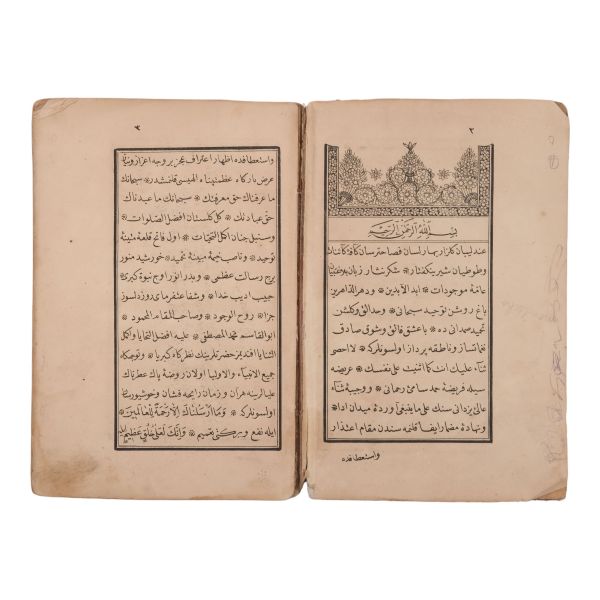 ٢
بسم الله الرحمن الرحيم
عندليبان كلزار بهار لسان فصاحترسان كافۀ كائنات
وطوطيان شيرينكفتار ❊ شكرنثار زبان
عامۀ موجودات ❊ ابد الآبدين ❊ ودهر الداهرين
باغ روشن توحيد سبحانى ❊ وحدائق وكلشن
تمجيد صمدانى ده ❊ باعشق فائق وشوق صادق
نغمتساز وناطقه پرداز اولسونلركه ❊ لا احصى
ثناء عليك انت كما اثنيت على نفسك ❊ عريضه
سپلۀ فريضۀ حمد سامئ رحمانى ❊ ووجيبۀ ثناء
عالئ يزدانى سنك على ما ينبغى آوردۀ ميدان ادا ❊
ونهادۀ مضمار ايفا قلنمه سندن مقام اعتذار
واستعطافده
٣
واستعطافده اظهار اعتراف عجز بر وجه اعزاز ونياز
عرض باركاه عظمتپناه الهيسى قلنمشدر ❊ سبحانك
ما عرفناك حق معرفتك ❊ سبحانك ما عبدناك
حق عبادتك ❊ كل كلستان افضل الصلوات ❊
وسنبل جنان اكمل التحيات ❊ اول فاتح قلعۀ متينۀ
توحيد ❊ وناصب خيمۀ مبينۀ تمجيد ❊ خورشيد منور
برج رسالت عظمى ❊ وبدر انور اوج نبوة كبرى
حبيب اديب خدا ❊ وشفاعتفرماى روز دلسوز
جزا ❊ روح الوجود ❊ وصاحب المقام المحمود ❊
ابو القاسم محمد المصطفى ❊ عليه افضل التحايا واكمل
الثنايا افندمز حضرتلرينك نظركاه كبريا ❊ وتوجكاه
جميع الانبياء والاوليا اولان روضۀ پاك عطرناك
عليه لرينه هر آن وزمان رايحه فشان وخوشبورسان
اولسونلركه ❊ وما ارسلناك الا رحمة للعالمين ❊
ايله نفع وبركتى تعميم ❊ وانك لعلى خلق عظيم